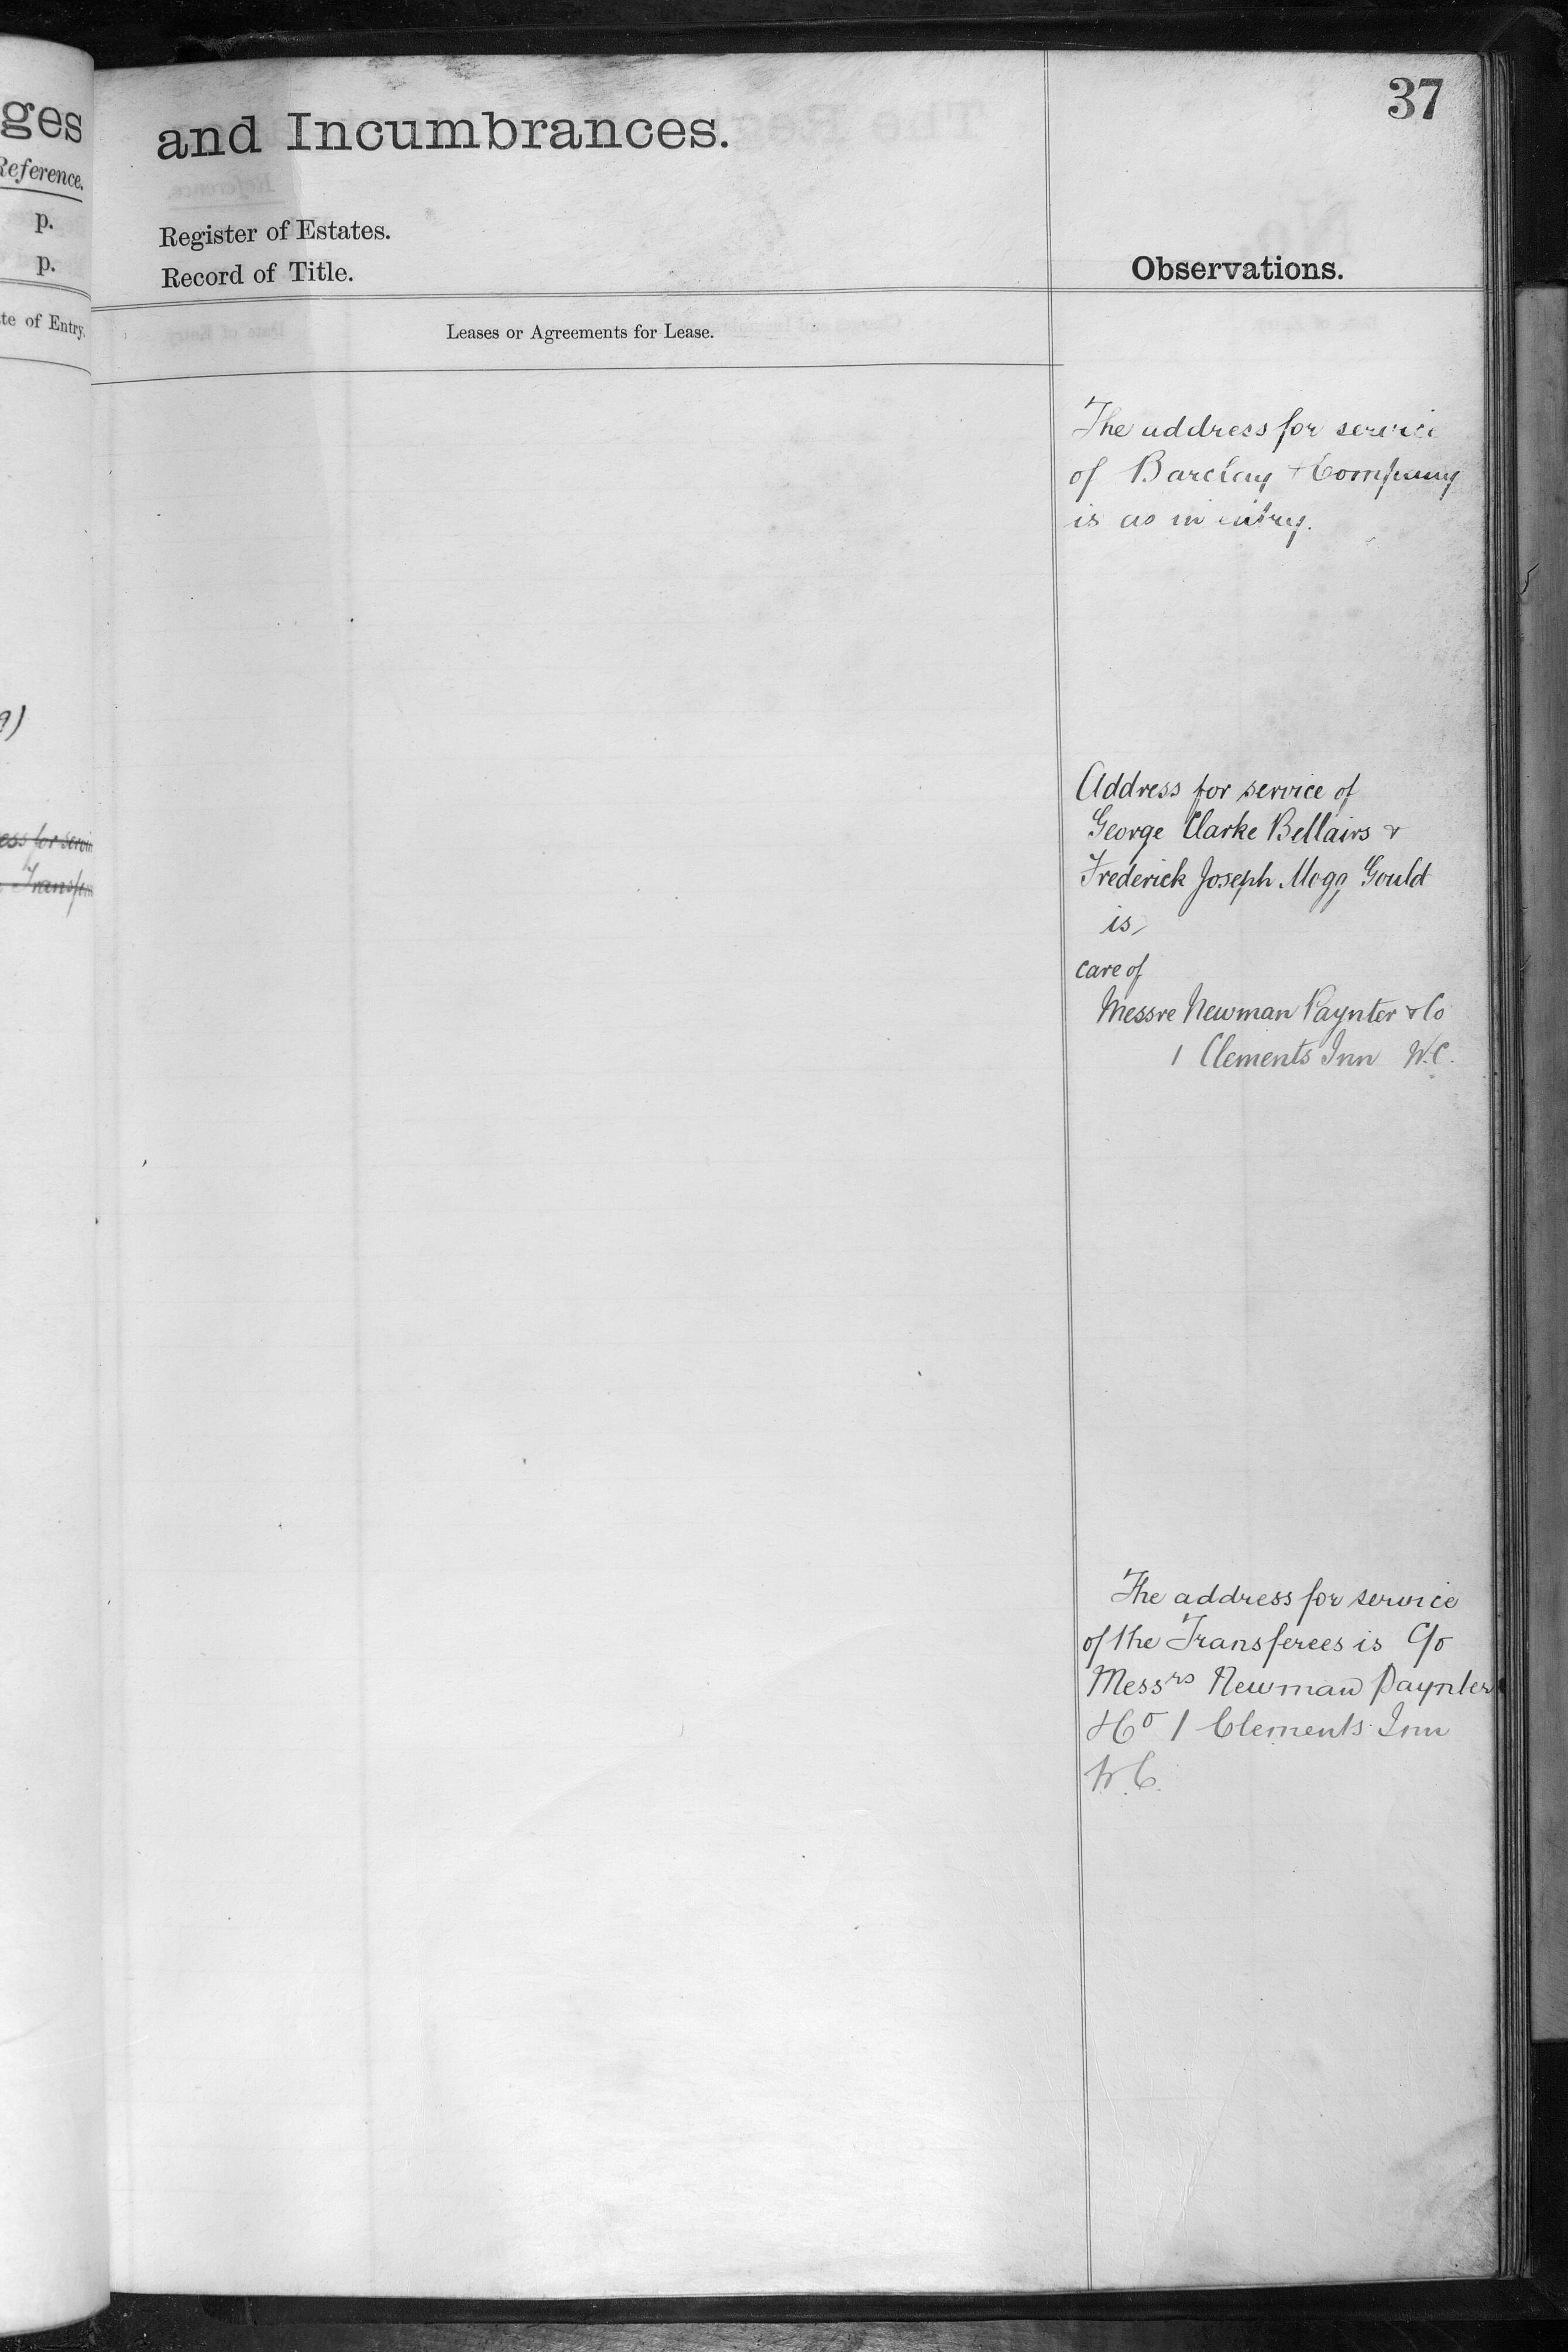 ges
Reference.
p.
p.
te of Entry.
ess for servi
Transfer
37
and Incumbrances.
Register of Estates.
Record of Title.
Observations.
Leases or Agreements for Lease.
The address for service
of Barclay & Company
is as in entry.
Address for service of
George Clarke Bellairs &
Frederick Joseph Mogg Gould
is,
care of
Messrs Newman Paynter & Co
1 Clements Inn W.C.
The address for service
of the Transferees is C/o
Messrs Newman Paynter
& Co 1 Clements Inn
W.C.